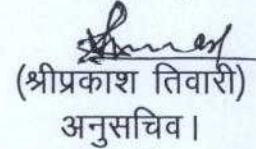 (श्रीप्रकाश तिवारी)
अनुसचिव।